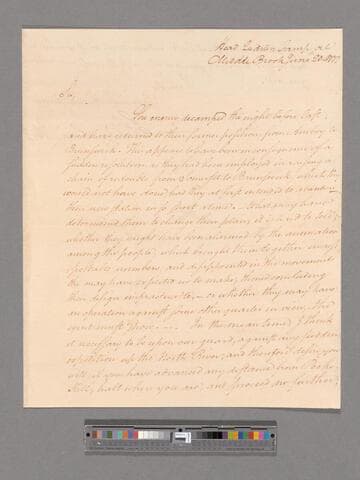 Head Quarters Camp at
Middle Brook June 20. 1777
Sir,
The enemy decamped the night before last
and have returned to their former position from Amboy to
Brunswick. This appears to have been in consequence of a
sudden resolution as they had been employed in raising a
chain of redoubts from Somerset to Brunswick which they
would not have done had they at first intended to
their new station in so short a time. What may have
determined them to change their plan it is hard to tell;
whether they might have been alarmed by the animation
among the people, which brought them together in very
numbers, and disappointed in the movements
they may have expected us to make, thence concluding
their design impracticable,— or whether they may have
an operation against some other quarter in view, the
event must show. — In the mean time, I think
it necessary to be upon our guard, against any sudden
expedition up the North River; and therefore desire you
will, if you have advanced any distance from Peeks
Kill, halt where you are, and proceed no further;